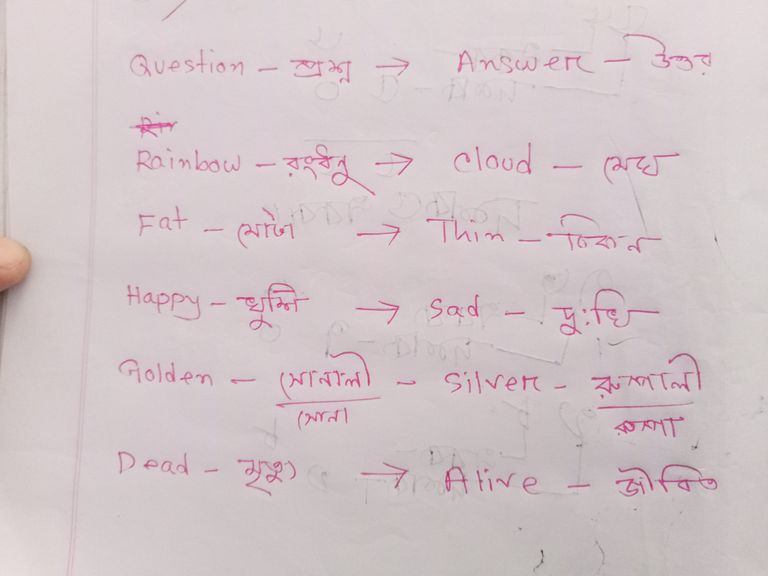 Question - প্রশ্ন → Answer - উত্তর
Rainbow - রংধনু → cloud - মেঘ
Fat - মোটা → Thin - চিকন
Happy - খুশি → sad - দুঃখি
Golden - সোনালী - silver - রুপালী
সোনা রুপা
Dead - মৃত্যু → Alive - জীবিত